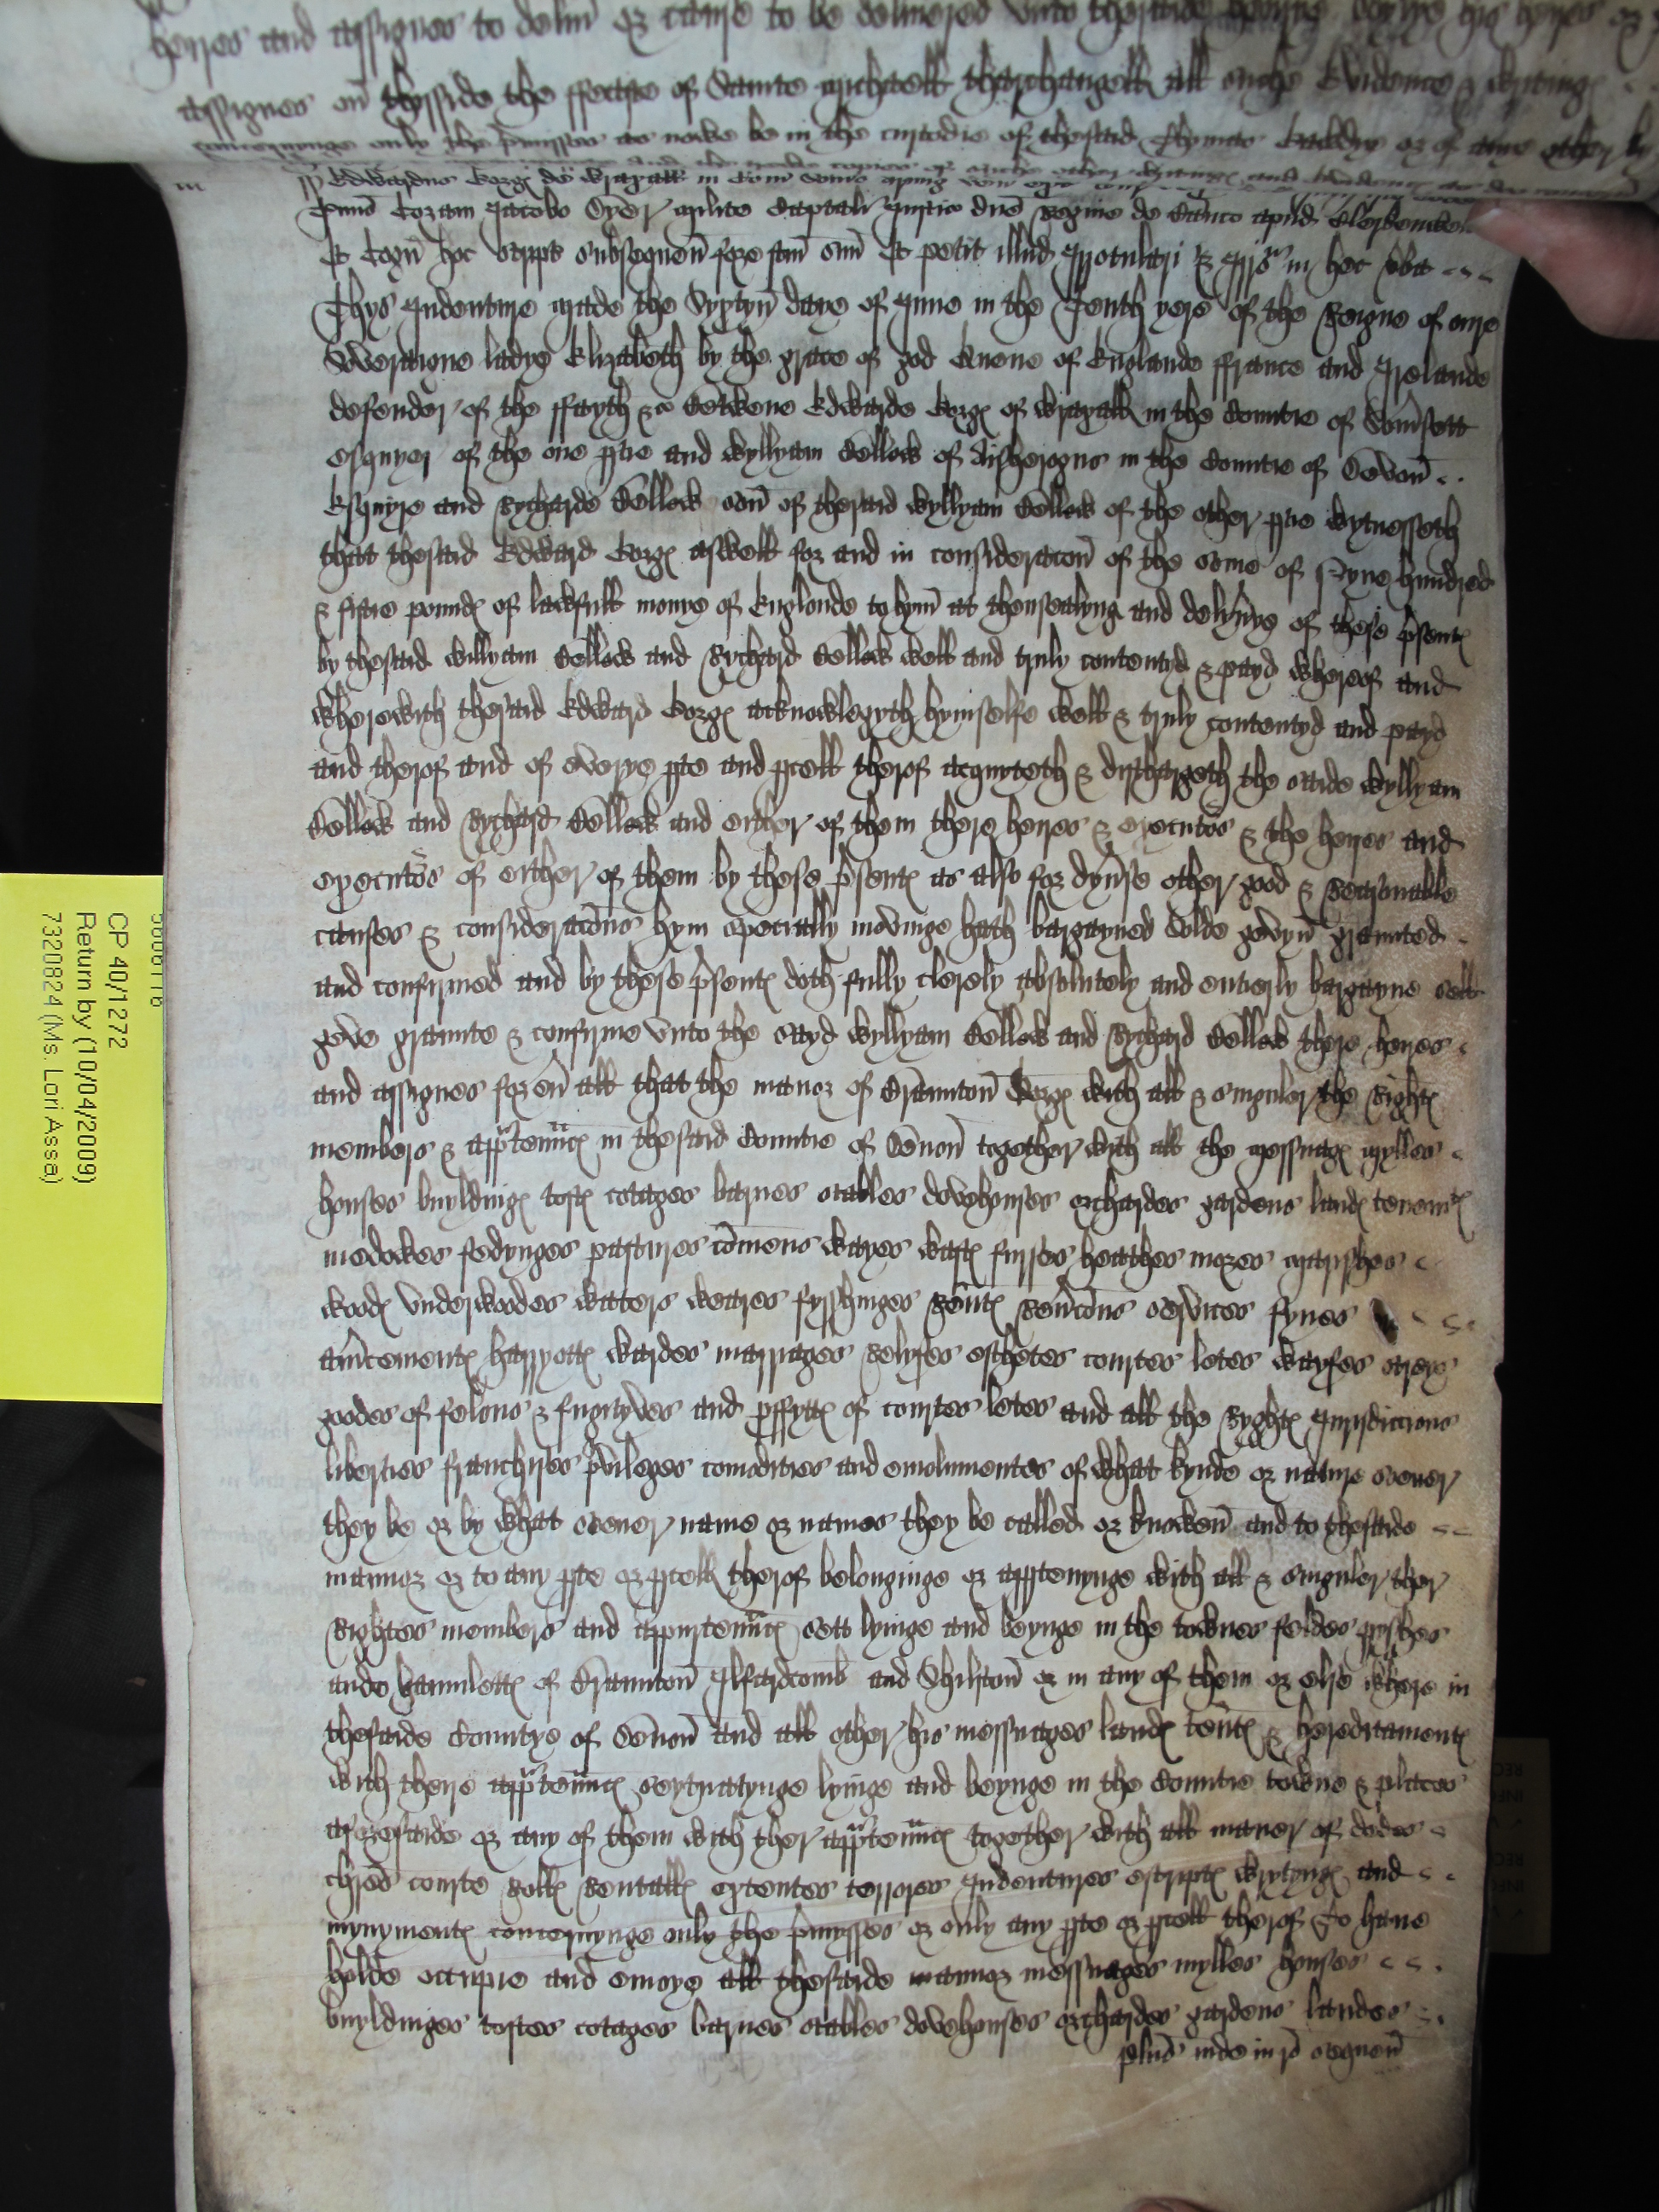 heyres and assignes to delivr or cause to be delivered unto thesaide
assignes on thyssyde the ffeaste of Saincte Michaell tharchangell all suche Evidence & wrytinge
concernynge only the pmisses as nowe be in the custodie of thesaid Thomas or of anie other
Edwardus Gorge de Wraxall in Com Soms
coram Jacobo Dyer Milite Capitali Justic dne Regine de Banco apud Clerkenwell
Et Cogn hoc script subsequen fore fcm suu Et petit illud Irrotulari & Irro in hec vba
Thys Indenture made the Syxtyn daye of June in the Tenth yere of the Reigne of oure
Soveraigne ladye Elizabeth by the grace of god Quene of Englande ffrance and Irelande
defender of the ffayth &c Betwene Edwarde Gorge of Wraxall in the Countie of Somsett
esquyer of the one ptie and Wyllyam Bellew of Aisherogns in the Countie of Devon
Esquyre and Rycharde Bellew son of thesaid Wyllyam Bellew of the other ptie Wytnesseth
that thesaid Edward Gorge aswell for and in consideracon of the some of Fyve hundred
& fiftie pounde of lawfull monye of Englonde to hym at thensealyng and delyvye of these psente
by thesaid Willyam Bellew and Rychard Bellew well and truly contentyd & payd whereof and
wherewith thesaid Edward Gorge acknowlegyth hymselfe well & truly contentyd and payd
and therof and of everye pte and pcell therof acquyteth & dischargeth the saide Wyllyam
Bellew and Rychard Bellew and either of them there heyres & executors & the heyres and
executors of either of them by these psente as also for dyvse other good & Reasonable
causes & consideracons hym specially movinge hath bargayned Solde gevyn graunted
and confirmed and by these psente doth fully clerely absolutely and entierly bargayne sell
geve graunte & confirme unto the sayd Wyllyam Bellew and Rychard Bellew there heyres
and assignes for ev all that the manor of Braunton Gorge with all & singuler the Righte
members & apprtennce in thesaid Countie of Devon together with all the messuage mylles
houses buyldinge tofte cotages barnes stables dovehouses orchardes gardens lande tenemte
medowes fedynges pastures comens wayes waste furses heathes mores marishes
woode underwoodes waters weares fysshinges Rente Revcons services fynes
amcemente harryotte wardes marriages Relyfes eschetes courtes letes wayfes strays
goodes of felons & fugityves and pffytte of courtes letes and all the Ryghte Jurisdictions
liberties franchises pvileges comodities and emolumentes of what kynde or nature soever
they be or by what soever name or names they be called or knowen and to thesaide
mannor or to any pte or pcell therof belonginge or apptenynge with all & singuler ther
Rightes members and appurtennce sett lyinge and beynge in the townes feldes pishes
ande hamulette of Braunton Ilfardcomb and Shilston or in any of them or else where in
thesaide Countye of Devon And all other his messuages lande tente & hereditamente
with there apprtennce scytuatynge lyinge and beynge in the Countie towne & places
aforesaide or any of them with ther apprtennce together with all maner of dedes
chred courte Rolle Rentalle extentes terrores Indentures escripte wrytynge and
mynymente concernynge only the pmysses or only any pte or pcell therof To have
holde occupie and enioye all thesaide mannor messuages mylles houses
buyldinges toftes cotages barnes stables dovehouses orchardes gardens landes
plus inde in ro sequen
CP 40/1272
Return by (10/04/2009)
7320824 (Ms. Lori Assa)